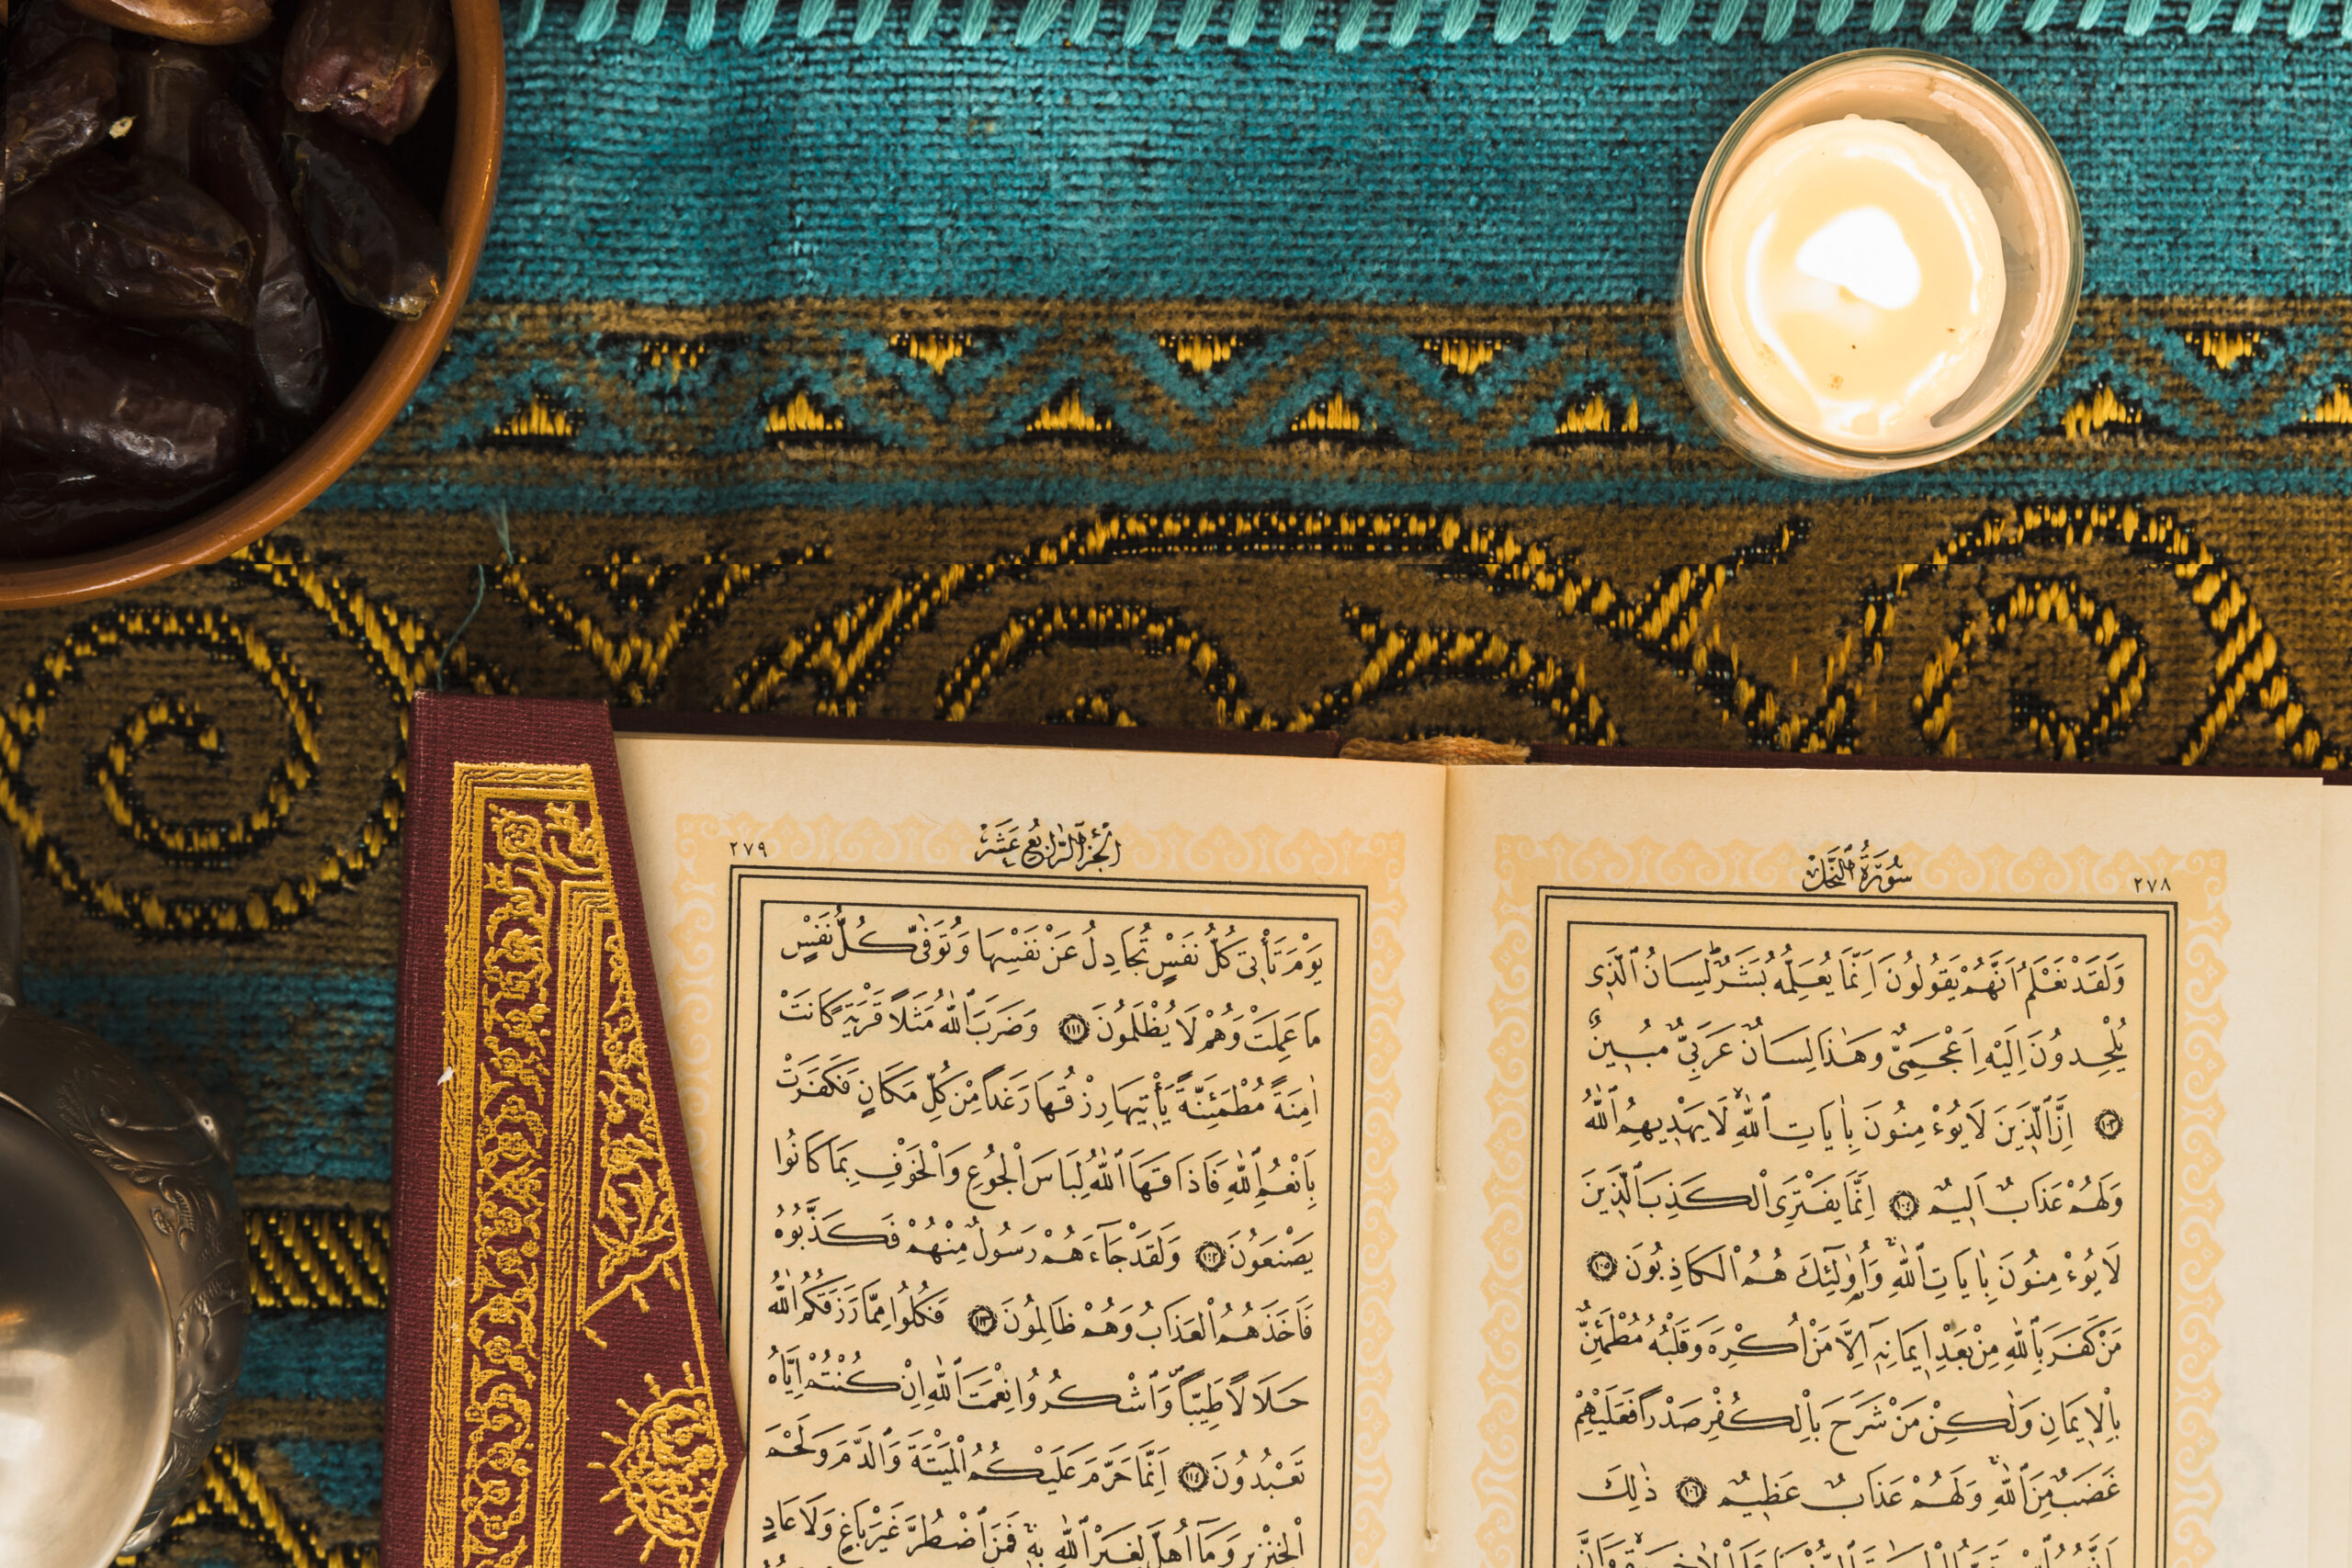 سُورَةُ ٱلنَّحْلِ
٢٧٨
وَلَقَدْ نَعْلَمُ اَنَّهُمْ يَقُولُونَ اِنَّمَا يُعَلِّمُهُ بَشَرٌ لِسَانُ ٱلَّذِى
يُلْحِدُونَ اِلَيْهِ اَعْجَمِىٌّ وَهٰذَا لِسَانٌ عَرَبِىٌّ مُبِينٌ
١٠٣ اِنَّ ٱلَّذِينَ لَا يُوءْمِنُونَ بِاٰيَاتِ ٱللّٰهِ لَا يَهْدِيهِمُ ٱللّٰهُ
وَلَهُمْ عَذَابٌ اَلِيمٌ ١٠٤ اِنَّمَا يَفْتَرِى ٱلْكَذِبَ ٱلَّذِينَ
لَا يُوءْمِنُونَ بِاٰيَاتِ ٱللّٰهِ وَاُو۬لٰٓئِكَ هُمُ ٱلْكَاذِبُونَ ١٠٥
مَنْ كَفَرَ بِٱللّٰهِ مِنْ بَعْدِ اِيمَانِهِٓ اِلَّا مَنْ اُكْرِهَ وَقَلْبُهُ مُطْمَئِنٌّ
بِٱلْاِيمَانِ وَلٰكِنْ مَنْ شَرَحَ بِٱلْكُفْرِ صَدْرًا فَعَلَيْهِمْ
غَضَبٌ مِنَ ٱللّٰهِ وَلَهُمْ عَذَابٌ عَظِيمٌ ١٠٦ ذٰلِكَ
ٱلْجُزْءُ ٱلرَّابِعُ عَشَرَ
٢٧٩
يَوْمَ تَأْتِى كُلُّ نَفْسٍ تُجَادِلُ عَنْ نَفْسِهَا وَتُوَفّٰى كُلُّ نَفْسٍ
مَا عَمِلَتْ وَهُمْ لَا يُظْلَمُونَ ١١١ وَضَرَبَ ٱللّٰهُ مَثَلًا قَرْيَةً كَانَتْ
اٰمِنَةً مُطْمَئِنَّةً يَأْتِيهَا رِزْقُهَا رَغَدًا مِنْ كُلِّ مَكَانٍ فَكَفَرَتْ
بِاَنْعُمِ ٱللّٰهِ فَاَذَاقَهَا ٱللّٰهُ لِبَاسَ ٱلْجُوعِ وَٱلْخَوْفِ بِمَا كَانُوا
يَصْنَعُونَ ١١٢ وَلَقَدْ جَآءَهُمْ رَسُولٌ مِنْهُمْ فَكَذَّبُوهُ
فَاَخَذَهُمُ ٱلْعَذَابُ وَهُمْ ظَالِمُونَ ١١٣ فَكُلُوا مِمَّا رَزَقَكُمُ ٱللّٰهُ
حَلَالًا طَيِّبًا وَٱشْكُرُوا نِعْمَتَ ٱللّٰهِ اِنْ كُنْتُمْ اِيَّاهُ
تَعْبُدُونَ ١١٤ اِنَّمَا حَرَّمَ عَلَيْكُمُ ٱلْمَيْتَةَ وَٱلدَّمَ وَلَحْمَ
ٱلْخِنْزِيرِ وَمَآ اُهِلَّ لِغَيْرِ ٱللّٰهِ بِهِ فَمَنِ ٱضْطُرَّ غَيْرَ بَاغٍ وَلَا عَادٍ